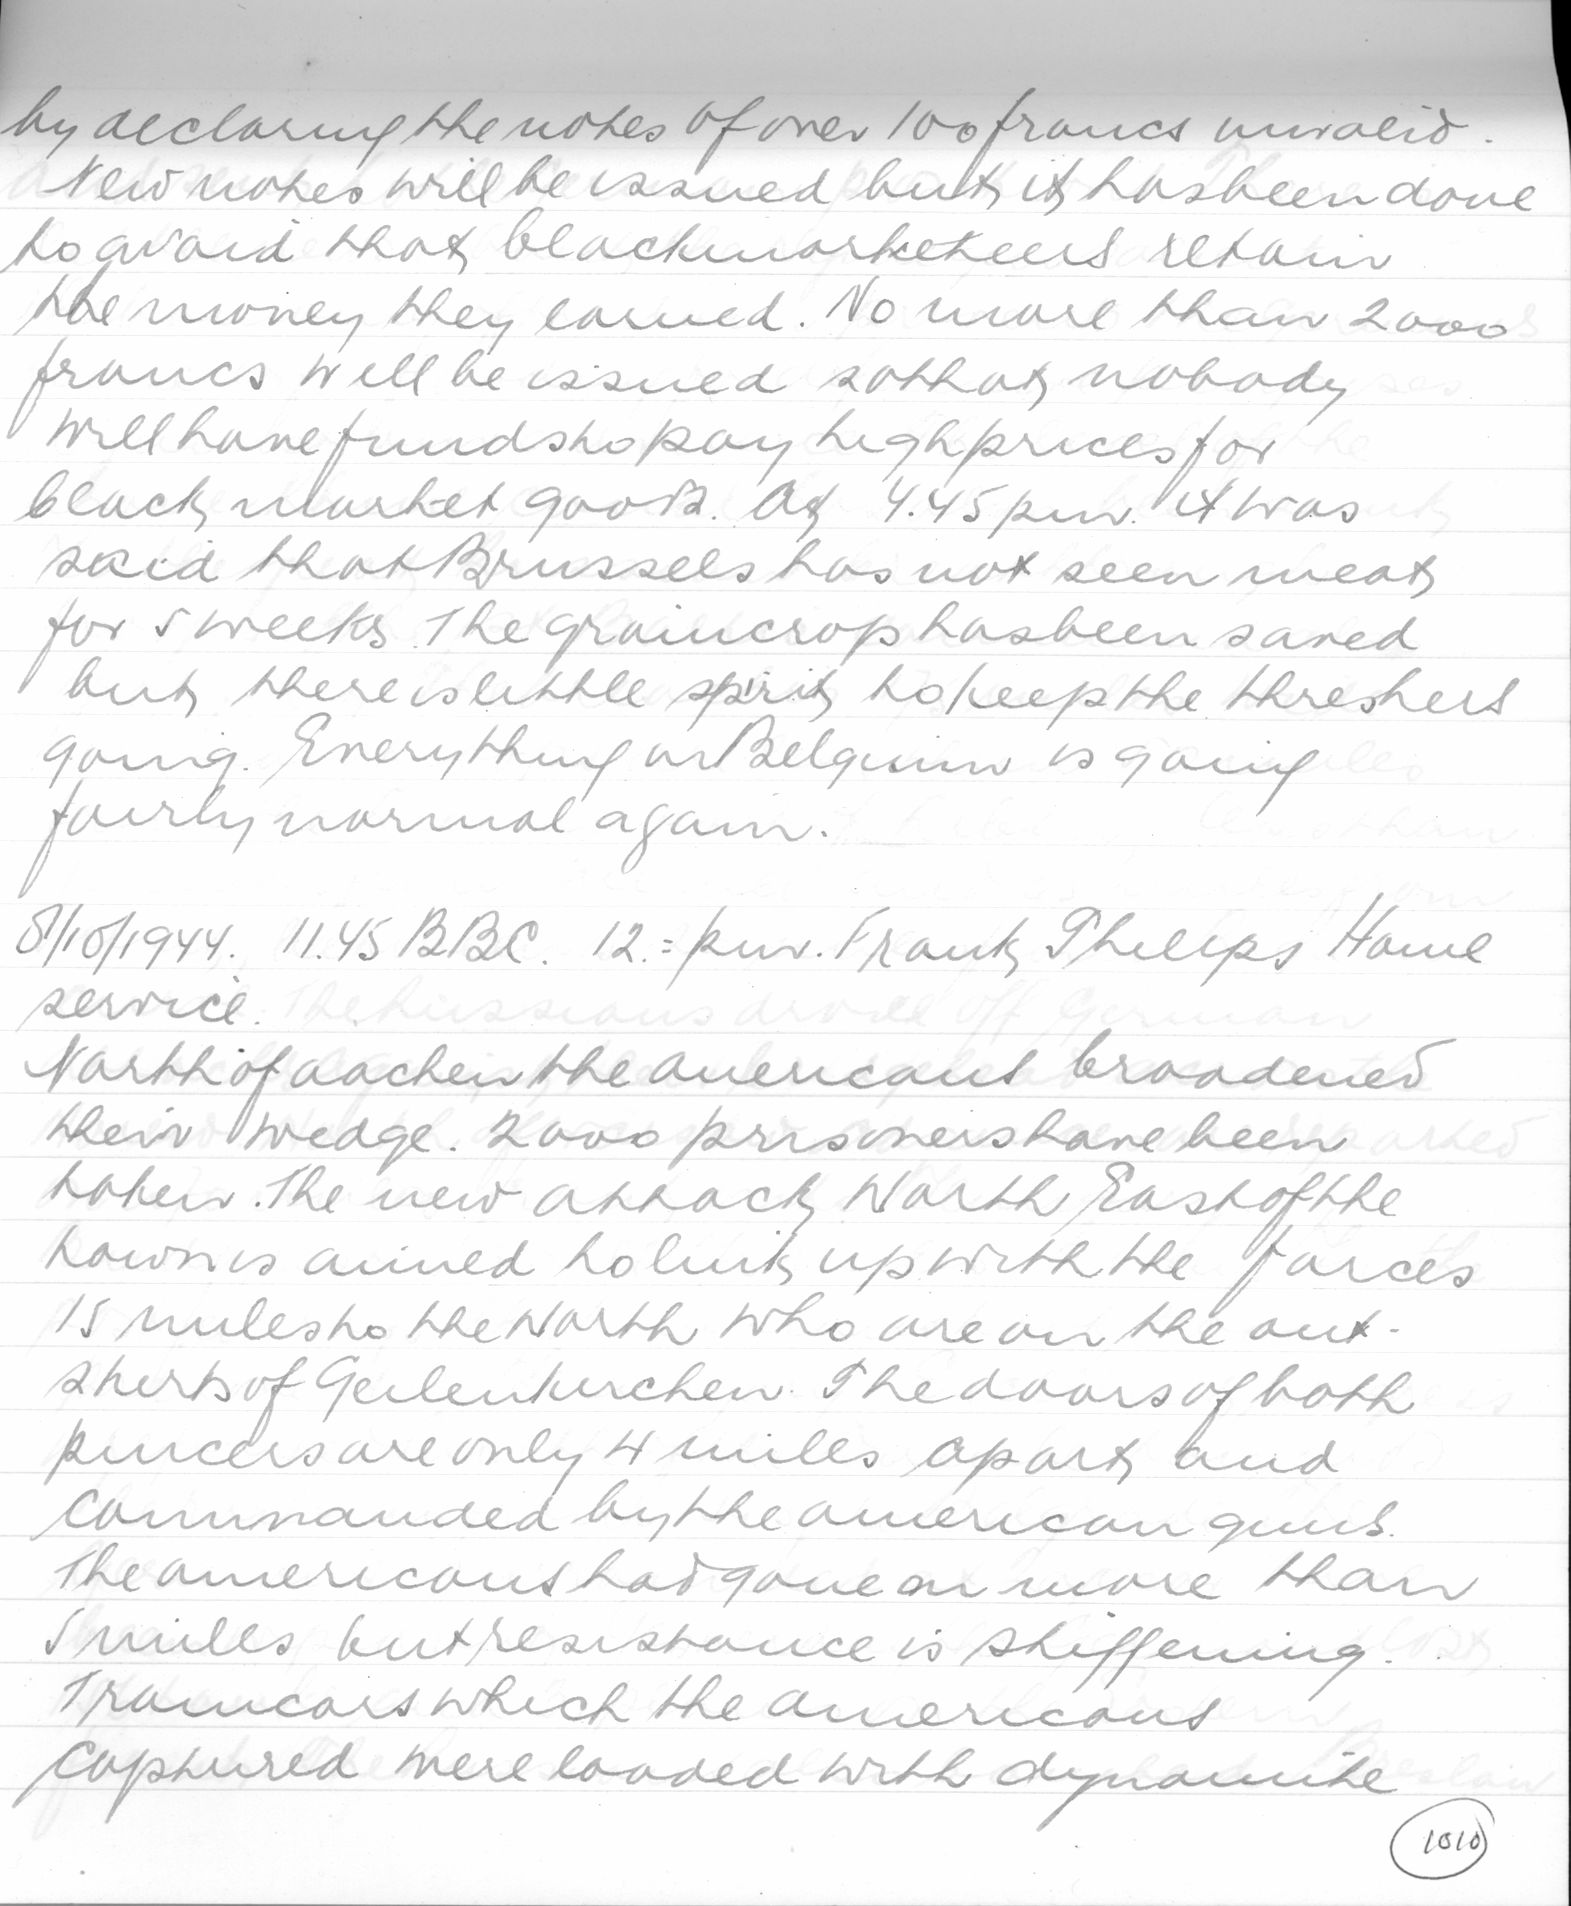 by declaring the notes of over 100 francs unvalid.
New notes will be issued but it has been done
to avoid that blackmarketeers retain
the money they earned. No more than 2000
francs will be issued so that nobody
will have funds to pay high prices for
black market goods. At 4.45 pm. it was
said that Brussels has not seen meat
for 5 weeks. The grain crop has been saved
but there is little spirit to keep the threshers
going. Everything in Belgium is going
fairly normal again.
8/10/1944. 11.45 BBC. 12.= pm. Frank Phelips Home
service.
North of aachen the americans broadened
their wedge. 2000 prisoners have been
taken. The new attack North East of the
town is aimed to link up with the forces
15 miles to the North who are on the out-
skirts of Geilenkirchen. The doors of both
pincers are only 4 miles apart and
commanded by the american guns.
The americans had gone on more than
5 miles but resistance is stiffening.
Tramcars which the americans
captured were loaded with dynamite
1010